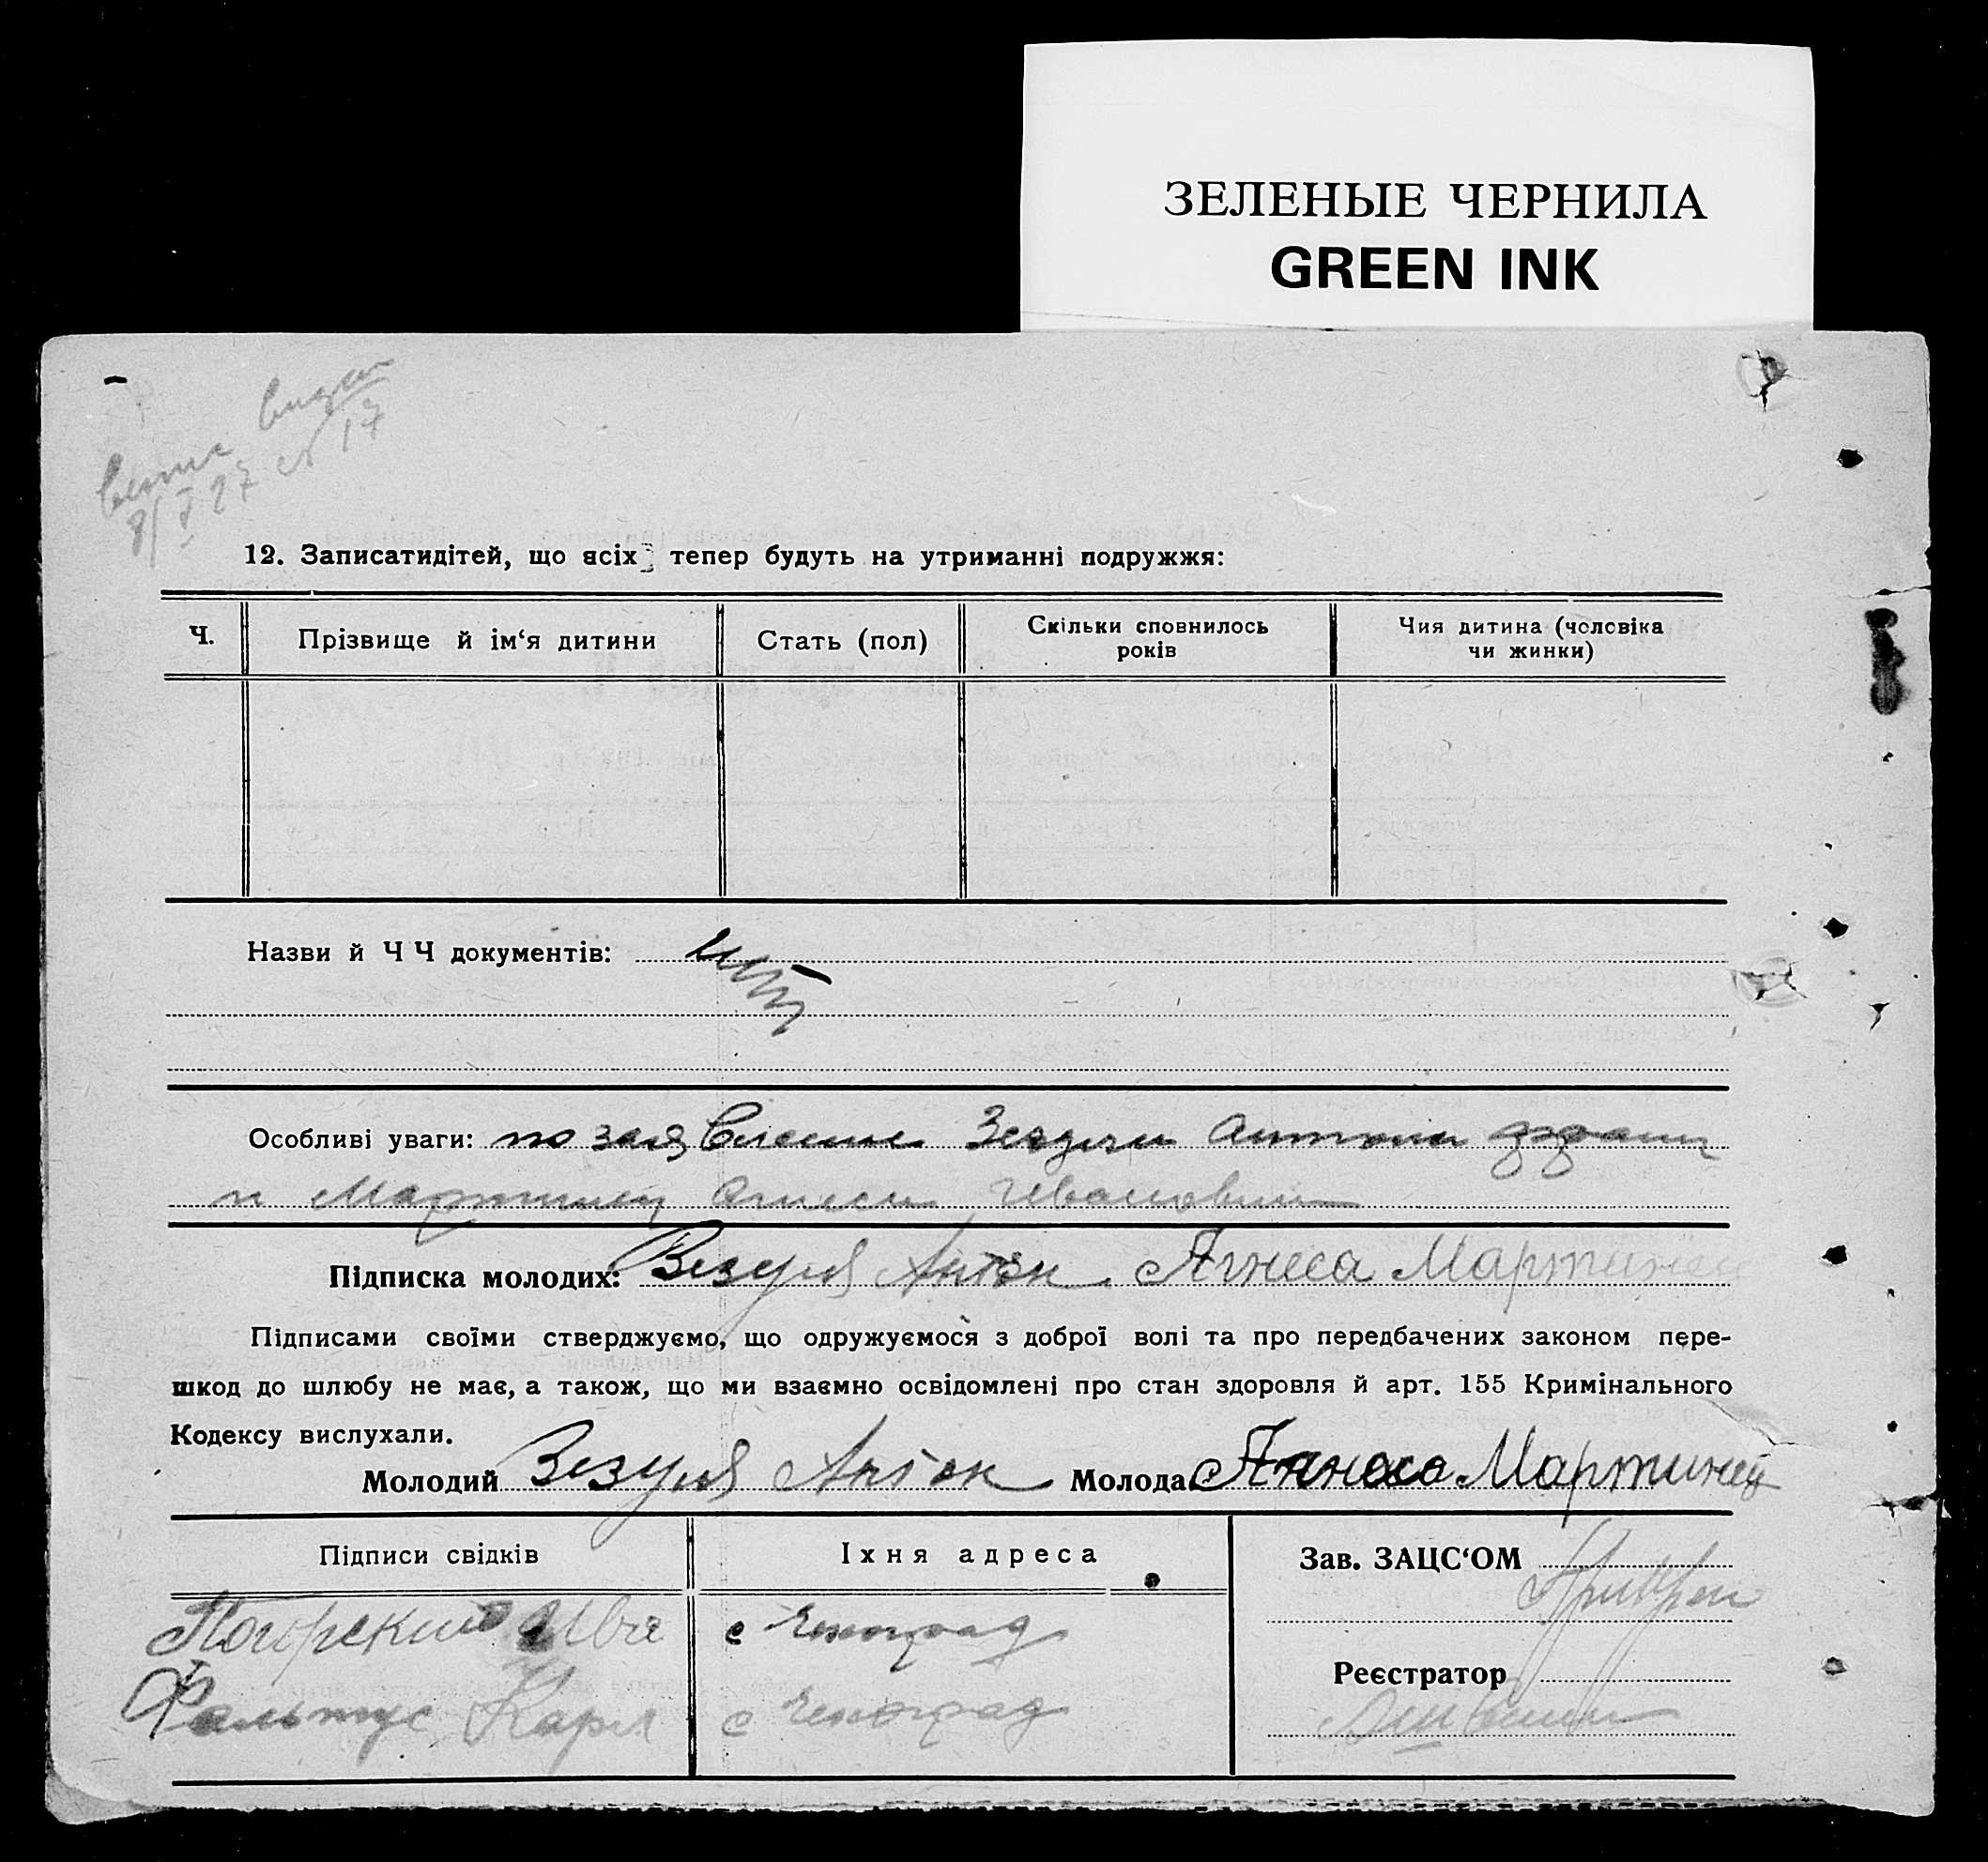 ЗЕЛЕНЫЕ ЧЕРНИЛА
GREEN INK
№ 17
12. Записатидітей, що всіх тепер будуть на утриманні подружжя:
Ч.
Прізвище й ім‘я дитини
Стать (пол)
Скільки сповнилось
років
Чия дитина (чоловіка
чи жинки)
Назви й Ч Ч документів:
Особливі уваги: по заявлению Антона
и Мартинец Агнесы Ивановны
Підписка молодих: Везуля Антон Агнеса Мартинец
Підписами своїми стверджуємо, що одружуємося з доброї волі та про передбачених законом пере-
шкод до шлюбу не має, а також, що ми взаємно освідомлені про стан здоровля й арт. 155 Кримінального
Кодексу вислухали.
Молодий Везуля Антон Молода Агнеса Мартинец
Підписи свідків
Їхня адреса
Зав. ЗАЦС‘ОМ
с Чехоград
Реєстратор
Фальтус Карл
с Чехоград